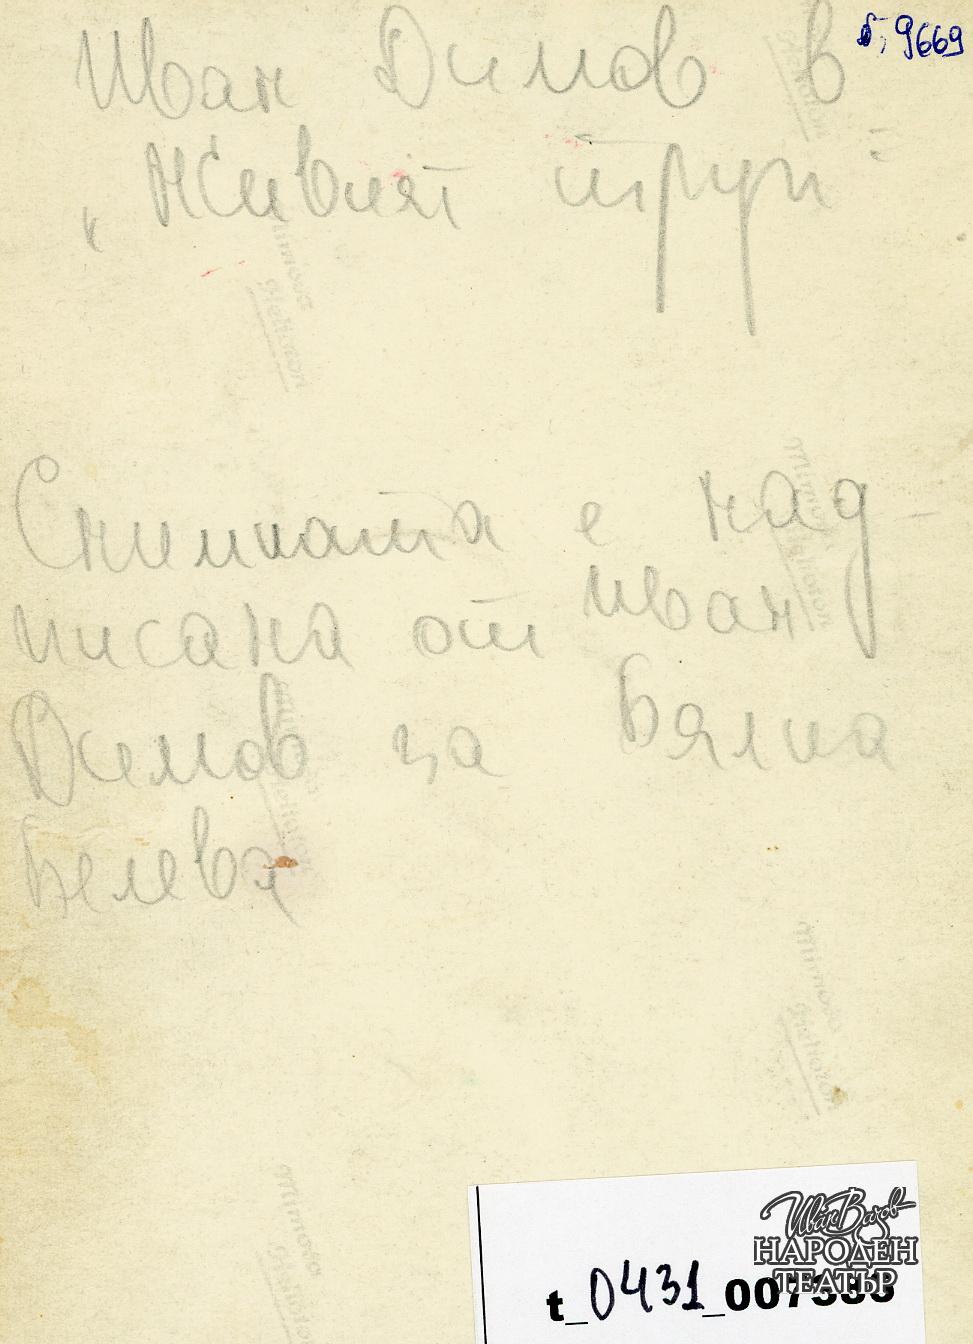 б, 9669
Иван Димов в
„Живият труп"
Снимката е над-
писана от Иван
Димов за Бялка
Белева
Иван Вазов
НАРОДЕН
ТЕАТЪР
t_0431_007335